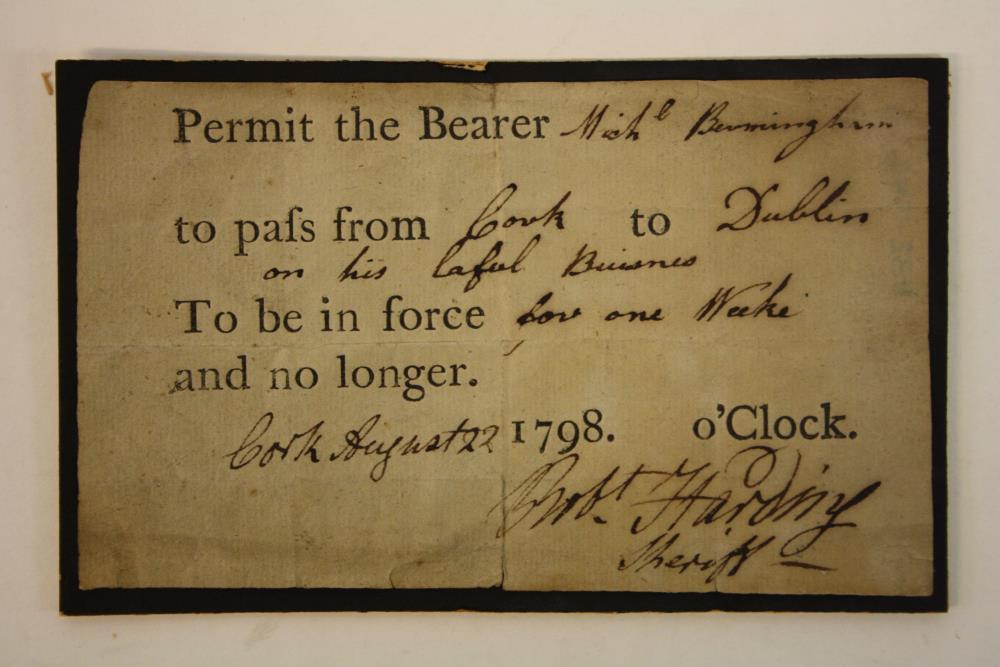 Permit the Bearer Mich^l Bermingham
to paſs from Cork to Dublin
on his laful Buisnes
To be in force for one Weeke
and no longer.
Cork August 22 1798. o'Clock.
Rob^t. Harding
Sheriff